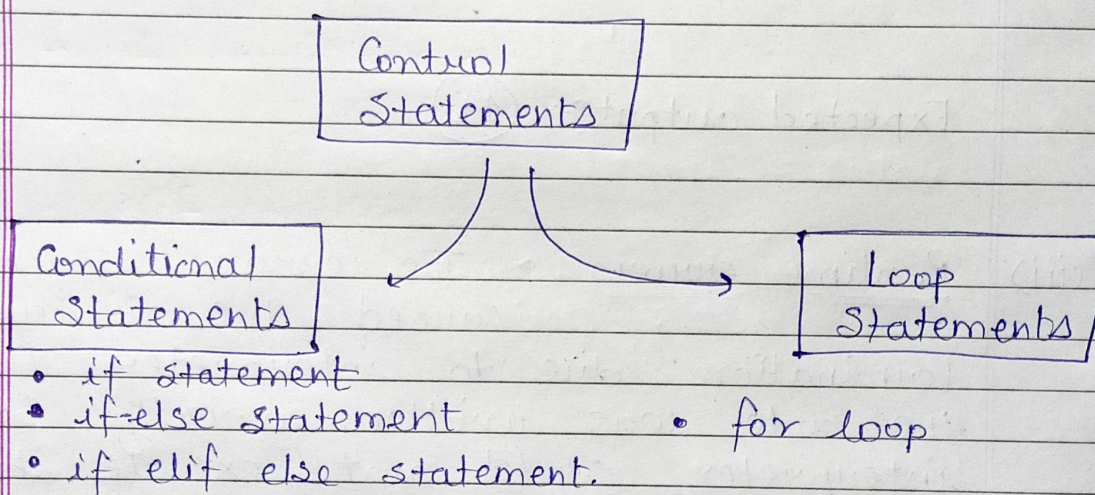 Control
Statements
Conditional
Statements
Loop
Statements
• if statement
• if-else statement
• for loop
• if elif else statement.